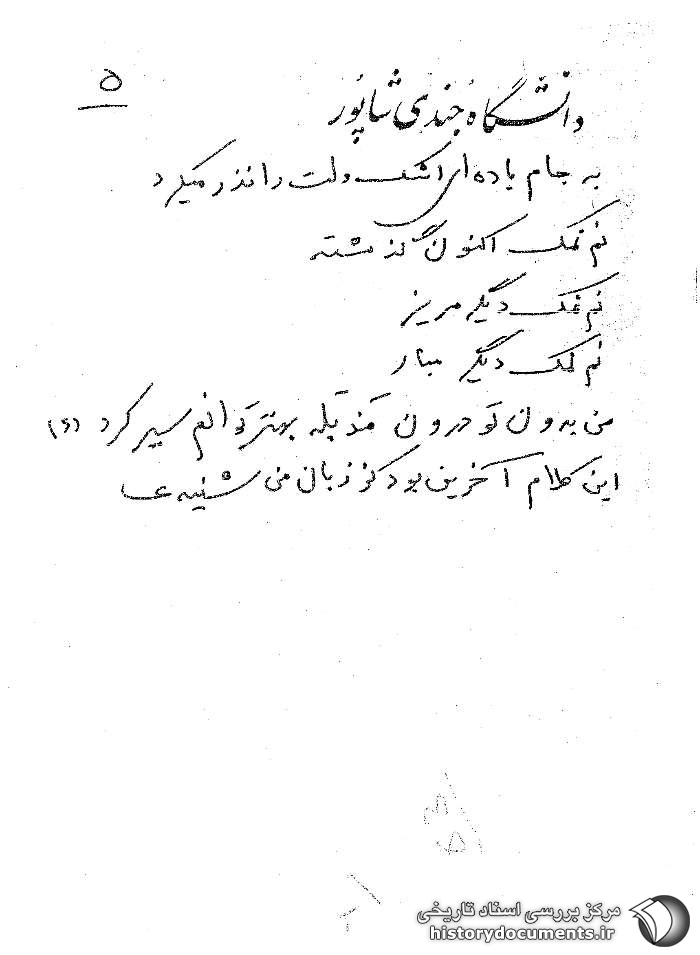 ۵
دانشگاه جندی شاپور
به جام باده ای اشک دلت را نذر میکرد
نم نمک اکنون گذشته
نم نمک دیگر مریز
نم نمک دیگر مبار
من بدون تو درون بهتر توانم سیر کرد (۶)
این کلام آخرین بود کز زبان من شنید
مرکز بررسی اسناد تاریخی
historydocuments.ir